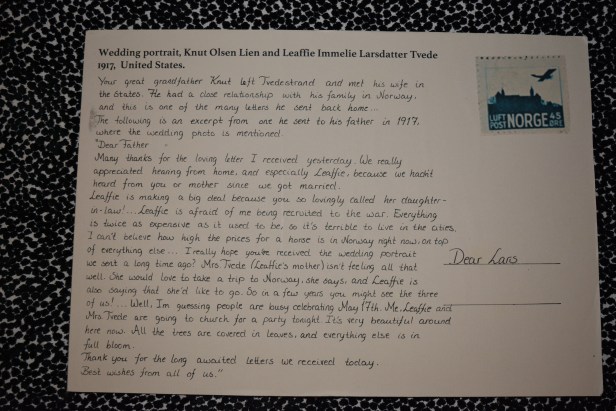 Wedding portrait, Knut Olsen Lien and Leaffie Immelie Larsdatter Tvede
1917, United States.
Your great grandfather Knut left Tvedestrand and met his wife in
the States. He had a close relationship with his family in Norway,
and this is one of the many letters he sent back home...
The following is an excerpt from one he sent to his father in 1917,
where the wedding photo is mentioned.
"Dear Father
Many thanks for the loving letter I received yesterday. We really
appreciated hearing from home, and especially Leaffie, because we hadn't
heard from you or mother since we got married.
Leaffie is making a big deal because you so lovingly called her daughter-
in-law!... Leaffie is afraid of me being recruited to the war. Everything
is twice as expensive as it used to be, so it's terrible to live in the cities.
I can't believe how high the prices for a horse is in Norway right now, on top
of everything else... I really hope you've received the wedding portrait
we sent a long time ago? Mrs. Tvede (Leaffie's mother) isn't feeling all that
well. She would love to take a trip to Norway, she says, and Leaffie is
also saying that she'd like to go. So in a few years you might see the three
of us!... Well, Im guessing people are busy celebrating May 17th. Me, Leaffie and
Mrs. Tvede are going to church for a party tonight. It's very beautiful around
here now. All the trees are covered in leaves, and everything else is in
full bloom.
Thank you for the long awaited letters we received today.
Best wishes from all of us."
LUFT
POST NORGE 45
ØRE
Dear Lars